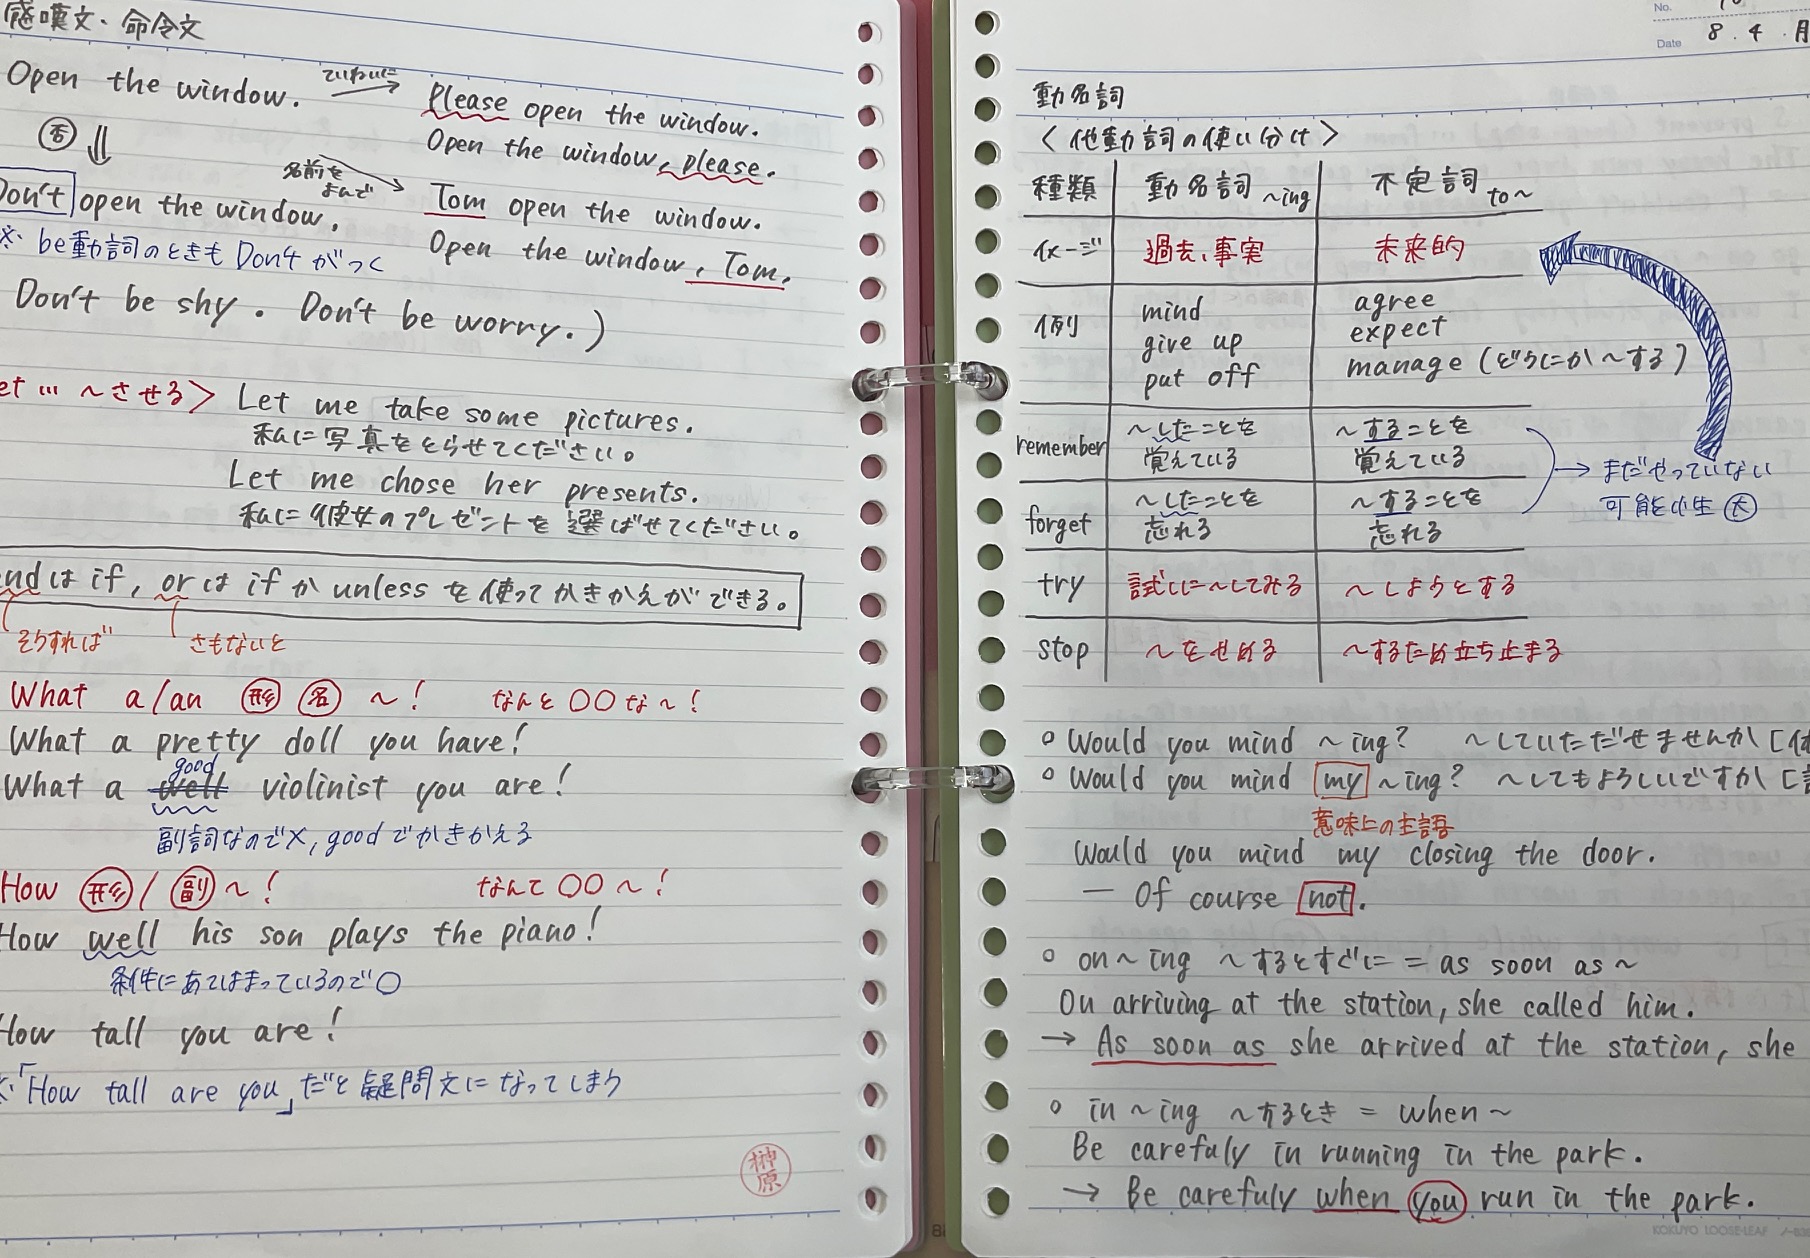 感嘆文・命令文
Open the window. ていねいに Please open the window.
Open the window, please.
否
名前をよんで Tom open the window.
Don't open the window.
Open the window, Tom.
※ be動詞のときも Don't がつく
Don't be shy. Don't be worry.)
et … 〜させる〉 Let me take some pictures.
私に写真をとらせてください。
Let me chose her presents.
私に彼女のプレゼントを選ばせてください。
andは if, orは ifか unlessを使ってかきかえができる。
そうすれば さもないと
What a/an 形 名 〜! なんと〇〇な〜!
What a pretty doll you have!
good
What a well violinist you are!
副詞なので×, goodでかきかえる
How 形/副〜! なんて〇〇〜!
How well his son plays the piano!
条件にあてはまっているので〇
How tall you are!
※「How tall are you」だと疑問文になってしまう
榊原
No.
Date 8.4.月
動名詞
〈他動詞の使い分け〉
種類 動名詞 〜ing 不定詞 to〜
イメージ 過去、事実 未来的
例 mind agree
give up expect
put off manage (どうにか〜する)
remember 〜したことを覚えている 〜することを覚えている
→ まだやっていない可能性大
forget 〜したことを忘れる 〜することを忘れる
try 試しに〜してみる 〜しようとする
stop 〜をせめる 〜するため立ち止まる
○ Would you mind 〜ing? 〜していただだせませんか [
○ Would you mind my 〜ing? 〜してもよろしいですか [
意味上の主語
Would you mind my closing the door.
— Of course not.
○ on〜ing 〜するとすぐに = as soon as〜
On arriving at the station, she called him.
→ As soon as she arrived at the station, she
○ in〜ing 〜するとき = when〜
Be carefuly in running in the park.
→ Be carefuly when you run in the park.
KOKUYO LOOSE-LEAF